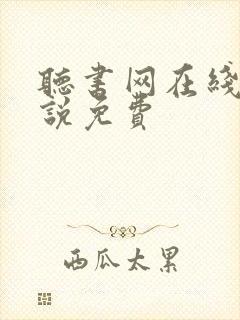 聽書网在綫
說免費
西瓜太累